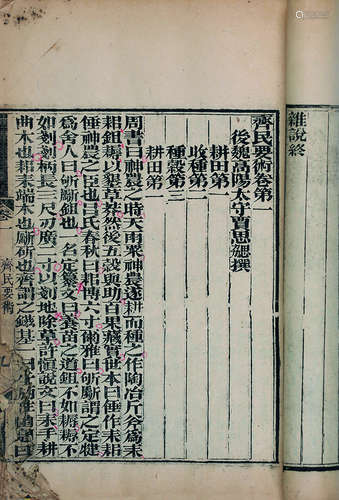 雜說終
齊民要術卷第一
後魏高陽太守賈思勰撰
耕田第一
收種第二
種穀第三
耕田第一
周書曰神農之時天雨粟神農遂耕而種之作陶冶斤斧爲耒
耜鉏耨以墾草莽然後五穀興助百果藏實世本曰倕作耒耜
倕神農之臣也呂氏春秋曰耜博六寸爾雅曰斪斸謂之定犍
爲舍人曰斪斸鉏也一名定纂文曰養苗之道鉏不如耨耨不
如剗剗柄長三尺刃廣二寸以剗地除草許慎說文曰耒手耕
曲木也耜耒端木也斸斫也齊謂之鎡基一曰
齊民要術